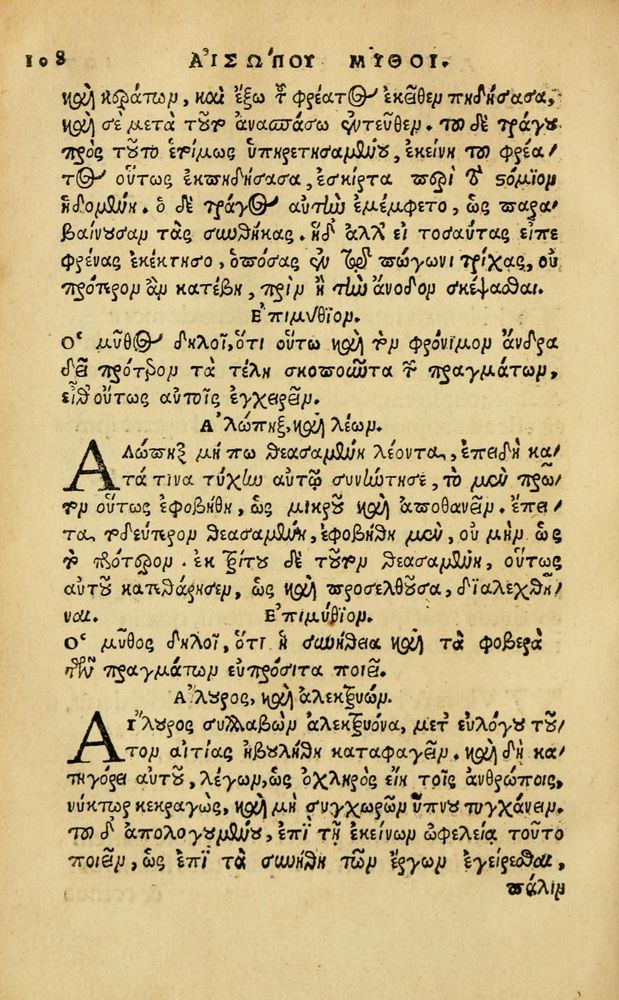 108 ΑἸΣΩ'ΠΟΥ ΜΥ͂ΘΟΙ.
καὶ κεράτων, καὶ ἔξω τοῦ φρέατος ἐκεῖθεν πηδήσασα,
καὶ σὲ μετὰ τοῦτ' ἀνασπάσω ἐντεῦθεν. τοῦ δὲ τράγου
πρὸς τοῦτο ἑτοίμως ὑπηρετησαμένου, ἐκείνη τοῦ φρέα/
τος οὕτως ἐκπηδήσασα, ἐσκίρτα περὶ τὸ στόμιον
ἡδομένη. ὁ δὲ τράγος αὐτὴν ἐμέμφετο, ὡς παρα/
βαίνουσαν τὰς συνθήκας. ἡ δ' ἀλλ' εἰ τοσαύτας εἶπε
φρένας ἐκέκτησο, ὁπόσας ἐν τῷ πώγωνι τρίχας, οὐ
πρότερον ἂν κατέβης, πρὶν ἢ τὴν ἄνοδον σκέψασθαι.
Ἐπιμύθιον.
Ὁ μῦθος δηλοῖ, ὅτι οὕτω καὶ τὸν φρόνιμον ἄνδρα
δεῖ πρότερον τὰ τέλη σκοποῦντα τῶν πραγμάτων,
εἶθ' οὕτως αὐτοῖς ἐγχειρεῖν.
Ἀλώπηξ, καὶ λέων.
ΑΛώπηξ μήπω θεασαμένη λέοντα, ἐπειδὴ κα/
τά τινα τύχην αὐτῷ συνήντησε, τὸ μὲν πρῶ/
τον οὕτως ἐφοβήθη, ὡς μικροῦ καὶ ἀποθανεῖν. ἔπει/
τα τὸ δεύτερον θεασαμένη, ἐφοβήθη μὲν, οὐ μὴν ὡς
τὸ πρότερον. ἐκ τρίτου δὲ τοῦτον θεασαμένη, οὕτως
αὐτοῦ κατεθάρρησεν, ὡς καὶ προσελθοῦσα, διαλεχθῆ/
ναι. Ἐπιμύθιον.
Ὁ μῦθος δηλοῖ, ὅτι ἡ συνήθεια καὶ τὰ φοβερὰ
τῶν πραγμάτων εὐπρόσιτα ποιεῖ.
Αἴλουρος, καὶ ἀλεκτρυών.
ΑΙ῎λουρος συλλαβὼν ἀλεκτρυόνα, μετ' εὐλόγου τοῦ/
τον αἰτίας ἠβουλήθη καταφαγεῖν. καὶ δὴ κα/
τηγόρει αὐτοῦ, λέγων, ὡς ὀχληρὸς εἴη τοῖς ἀνθρώποις,
νύκτωρ κεκραγὼς, καὶ μὴ συγχωρῶν ὕπνου τυγχάνειν.
τοῦ δ' ἀπολογουμένου, ἐπὶ τῇ ἐκείνων ὠφελείᾳ τοῦτο
ποιεῖν, ὡς ἐπὶ τὰ συνήθη τῶν ἔργων ἐγείρεσθαι,
πάλιν